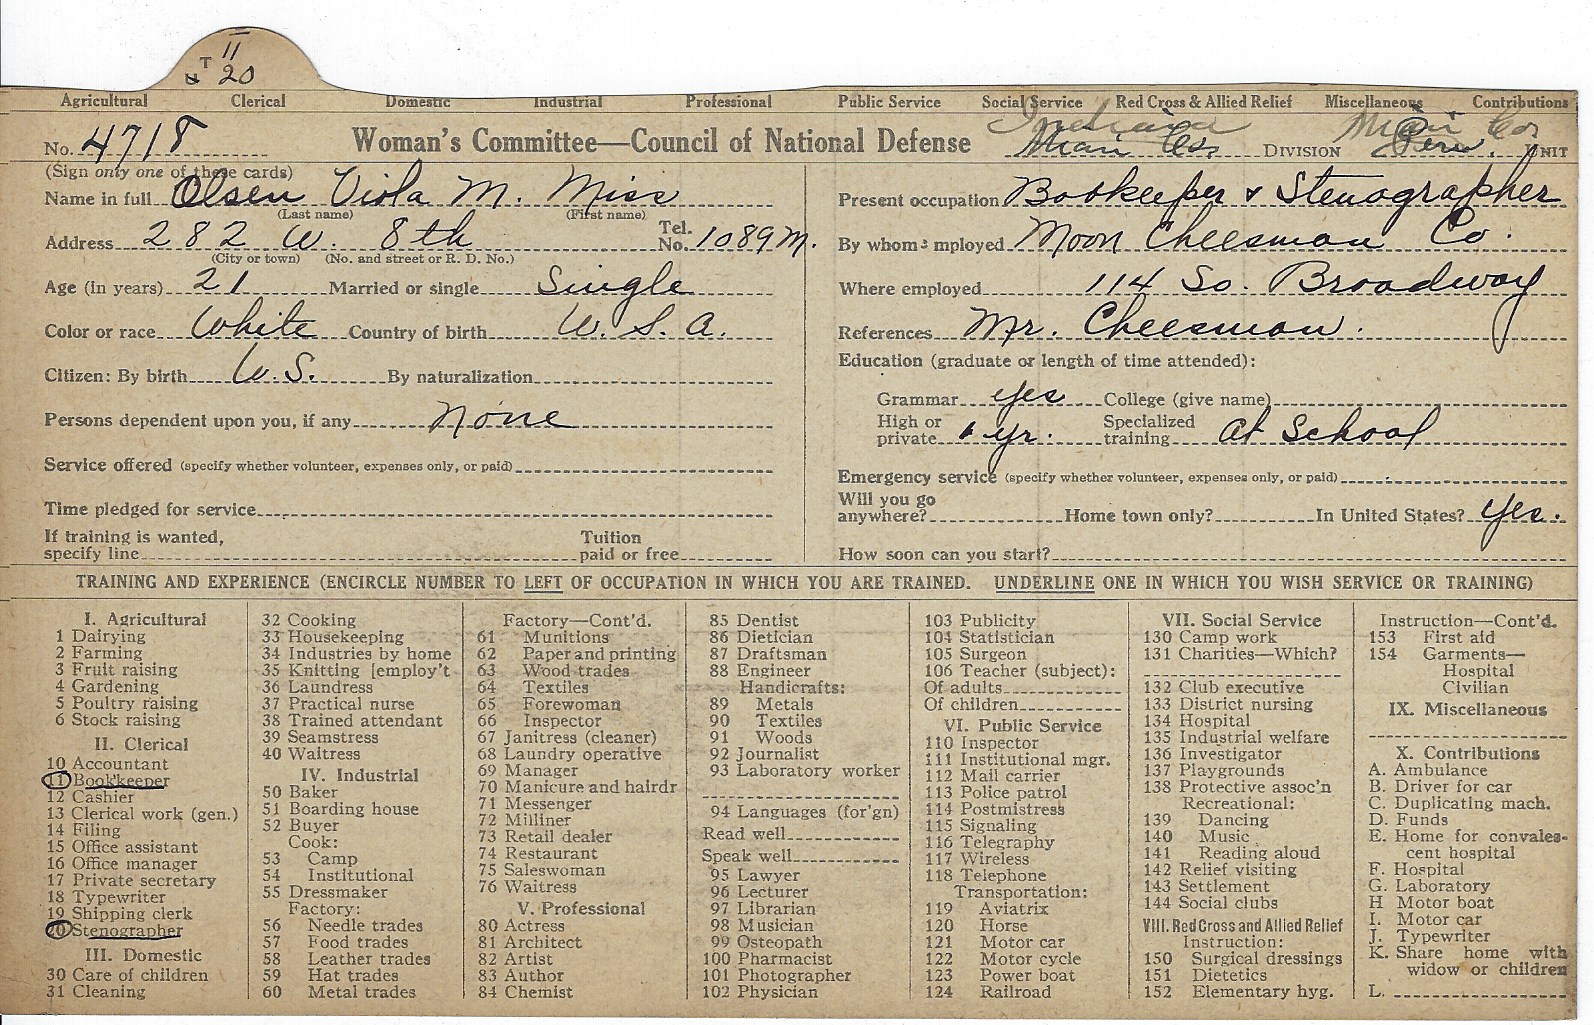 11
T 20
Agricultural Clerical Domestic Industrial Professional Public Service Social Service Red Cross & Allied Relief Miscellaneous Contributions
No. 4718 Woman's Committee—Council of National Defense Indiana Miami Co. DIVISION Miami Co. Peru. UNIT
(Sign only one of these cards)
Name in full Olsen Viola M. Miss
(Last name) (First name)
Address 282 W. 8th Tel. No. 1089 M.
(City or town) (No. and street or R. D. No.)
Age (in years) 21 Married or single Single
Color or race White Country of birth U. S. A.
Citizen: By birth U.S. By naturalization
Persons dependent upon you, if any None
Service offered (specify whether volunteer, expenses only, or paid)
Time pledged for service
If training is wanted, specify line Tuition paid or free
Present occupation Bookkeeper & Stenographer
By whom employed Moon Cheesman Co.
Where employed 114 So. Broadway
References Mr. Cheesman.
Education (graduate or length of time attended):
Grammar yes College (give name)
High or private 1 yr. Specialized training at School
Emergency service (specify whether volunteer, expenses only, or paid)
Will you go anywhere? Home town only? In United States? yes.
How soon can you start?
TRAINING AND EXPERIENCE (ENCIRCLE NUMBER TO LEFT OF OCCUPATION IN WHICH YOU ARE TRAINED. UNDERLINE ONE IN WHICH YOU WISH SERVICE OR TRAINING)
I. Agricultural
1 Dairying
2 Farming
3 Fruit raising
4 Gardening
5 Poultry raising
6 Stock raising
II. Clerical
10 Accountant
11 Bookkeeper
12 Cashier
13 Clerical work (gen.)
14 Filing
15 Office assistant
16 Office manager
17 Private secretary
18 Typewriter
19 Shipping clerk
20 Stenographer
III. Domestic
30 Care of children
31 Cleaning
32 Cooking
33 Housekeeping
34 Industries by home
35 Knitting [employ't
36 Laundress
37 Practical nurse
38 Trained attendant
39 Seamstress
40 Waitress
IV. Industrial
50 Baker
51 Boarding house
52 Buyer
Cook:
53 Camp
54 Institutional
55 Dressmaker
Factory:
56 Needle trades
57 Food trades
58 Leather trades
59 Hat trades
60 Metal trades
Factory—Cont'd.
61 Munitions
62 Paper and printing
63 Wood trades
64 Textiles
65 Forewoman
66 Inspector
67 Janitress (cleaner)
68 Laundry operative
69 Manager
70 Manicure and hairdr
71 Messenger
72 Milliner
73 Retail dealer
74 Restaurant
75 Saleswoman
76 Waitress
V. Professional
80 Actress
81 Architect
82 Artist
83 Author
84 Chemist
85 Dentist
86 Dietician
87 Draftsman
88 Engineer
Handicrafts:
89 Metals
90 Textiles
91 Woods
92 Journalist
93 Laboratory worker
94 Languages (for'gn)
Read well
Speak well
95 Lawyer
96 Lecturer
97 Librarian
98 Musician
99 Osteopath
100 Pharmacist
101 Photographer
102 Physician
103 Publicity
104 Statistician
105 Surgeon
106 Teacher (subject):
Of adults
Of children
VI. Public Service
110 Inspector
111 Institutional mgr.
112 Mail carrier
113 Police patrol
114 Postmistress
115 Signaling
116 Telegraphy
117 Wireless
118 Telephone
Transportation:
119 Aviatrix
120 Horse
121 Motor car
122 Motor cycle
123 Power boat
124 Railroad
VII. Social Service
130 Camp work
131 Charities—Which?
132 Club executive
133 District nursing
134 Hospital
135 Industrial welfare
136 Investigator
137 Playgrounds
138 Protective assoc'n
Recreational:
139 Dancing
140 Music
141 Reading aloud
142 Relief visiting
143 Settlement
144 Social clubs
VIII. Red Cross and Allied Relief
Instruction:
150 Surgical dressings
151 Dietetics
152 Elementary hyg.
Instruction—Cont'd.
153 First aid
154 Garments—
Hospital
Civilian
IX. Miscellaneous
X. Contributions
A. Ambulance
B. Driver for car
C. Duplicating mach.
D. Funds
E. Home for convales-
cent hospital
F. Hospital
G. Laboratory
H Motor boat
I. Motor car
J. Typewriter
K. Share home with
widow or children
L.